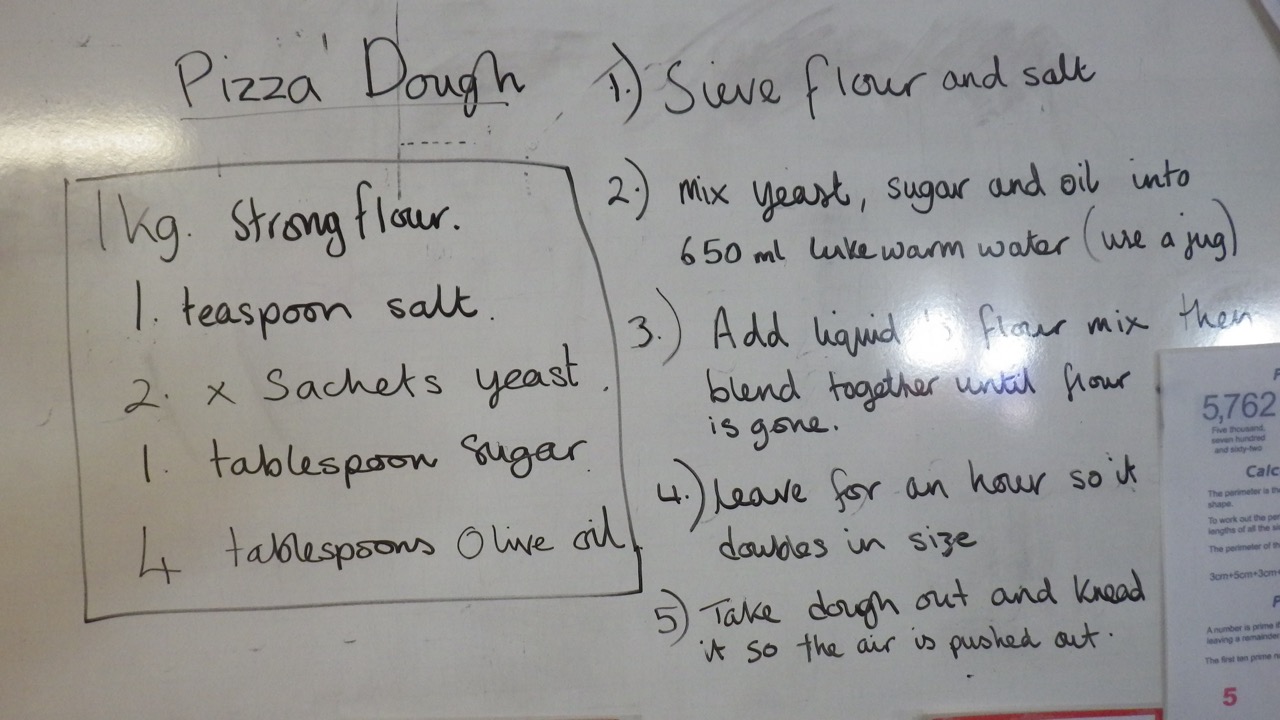 Pizza Dough
1kg. Strong flour.
1. teaspoon salt.
2. x Sachets yeast.
1. tablespoon sugar.
4 tablespoons Olive oil.
1.) Sieve flour and salt
2.) mix yeast, sugar and oil into
650 ml lukewarm water (use a jug)
3.) Add liquid flour mix then
blend together until flour
is gone.
4.) leave for an hour so it
doubles in size
5) Take dough out and knead
it so the air is pushed out.
5,762
Five thousand,
seven hundred
and sixty-two
Calc
The perimeter is the
shape.
To work out the per
lengths of all the si
The perimeter of th
3cm+5cm+3cm+
A number is prime if
leaving a remainder
The first ten prime n
5